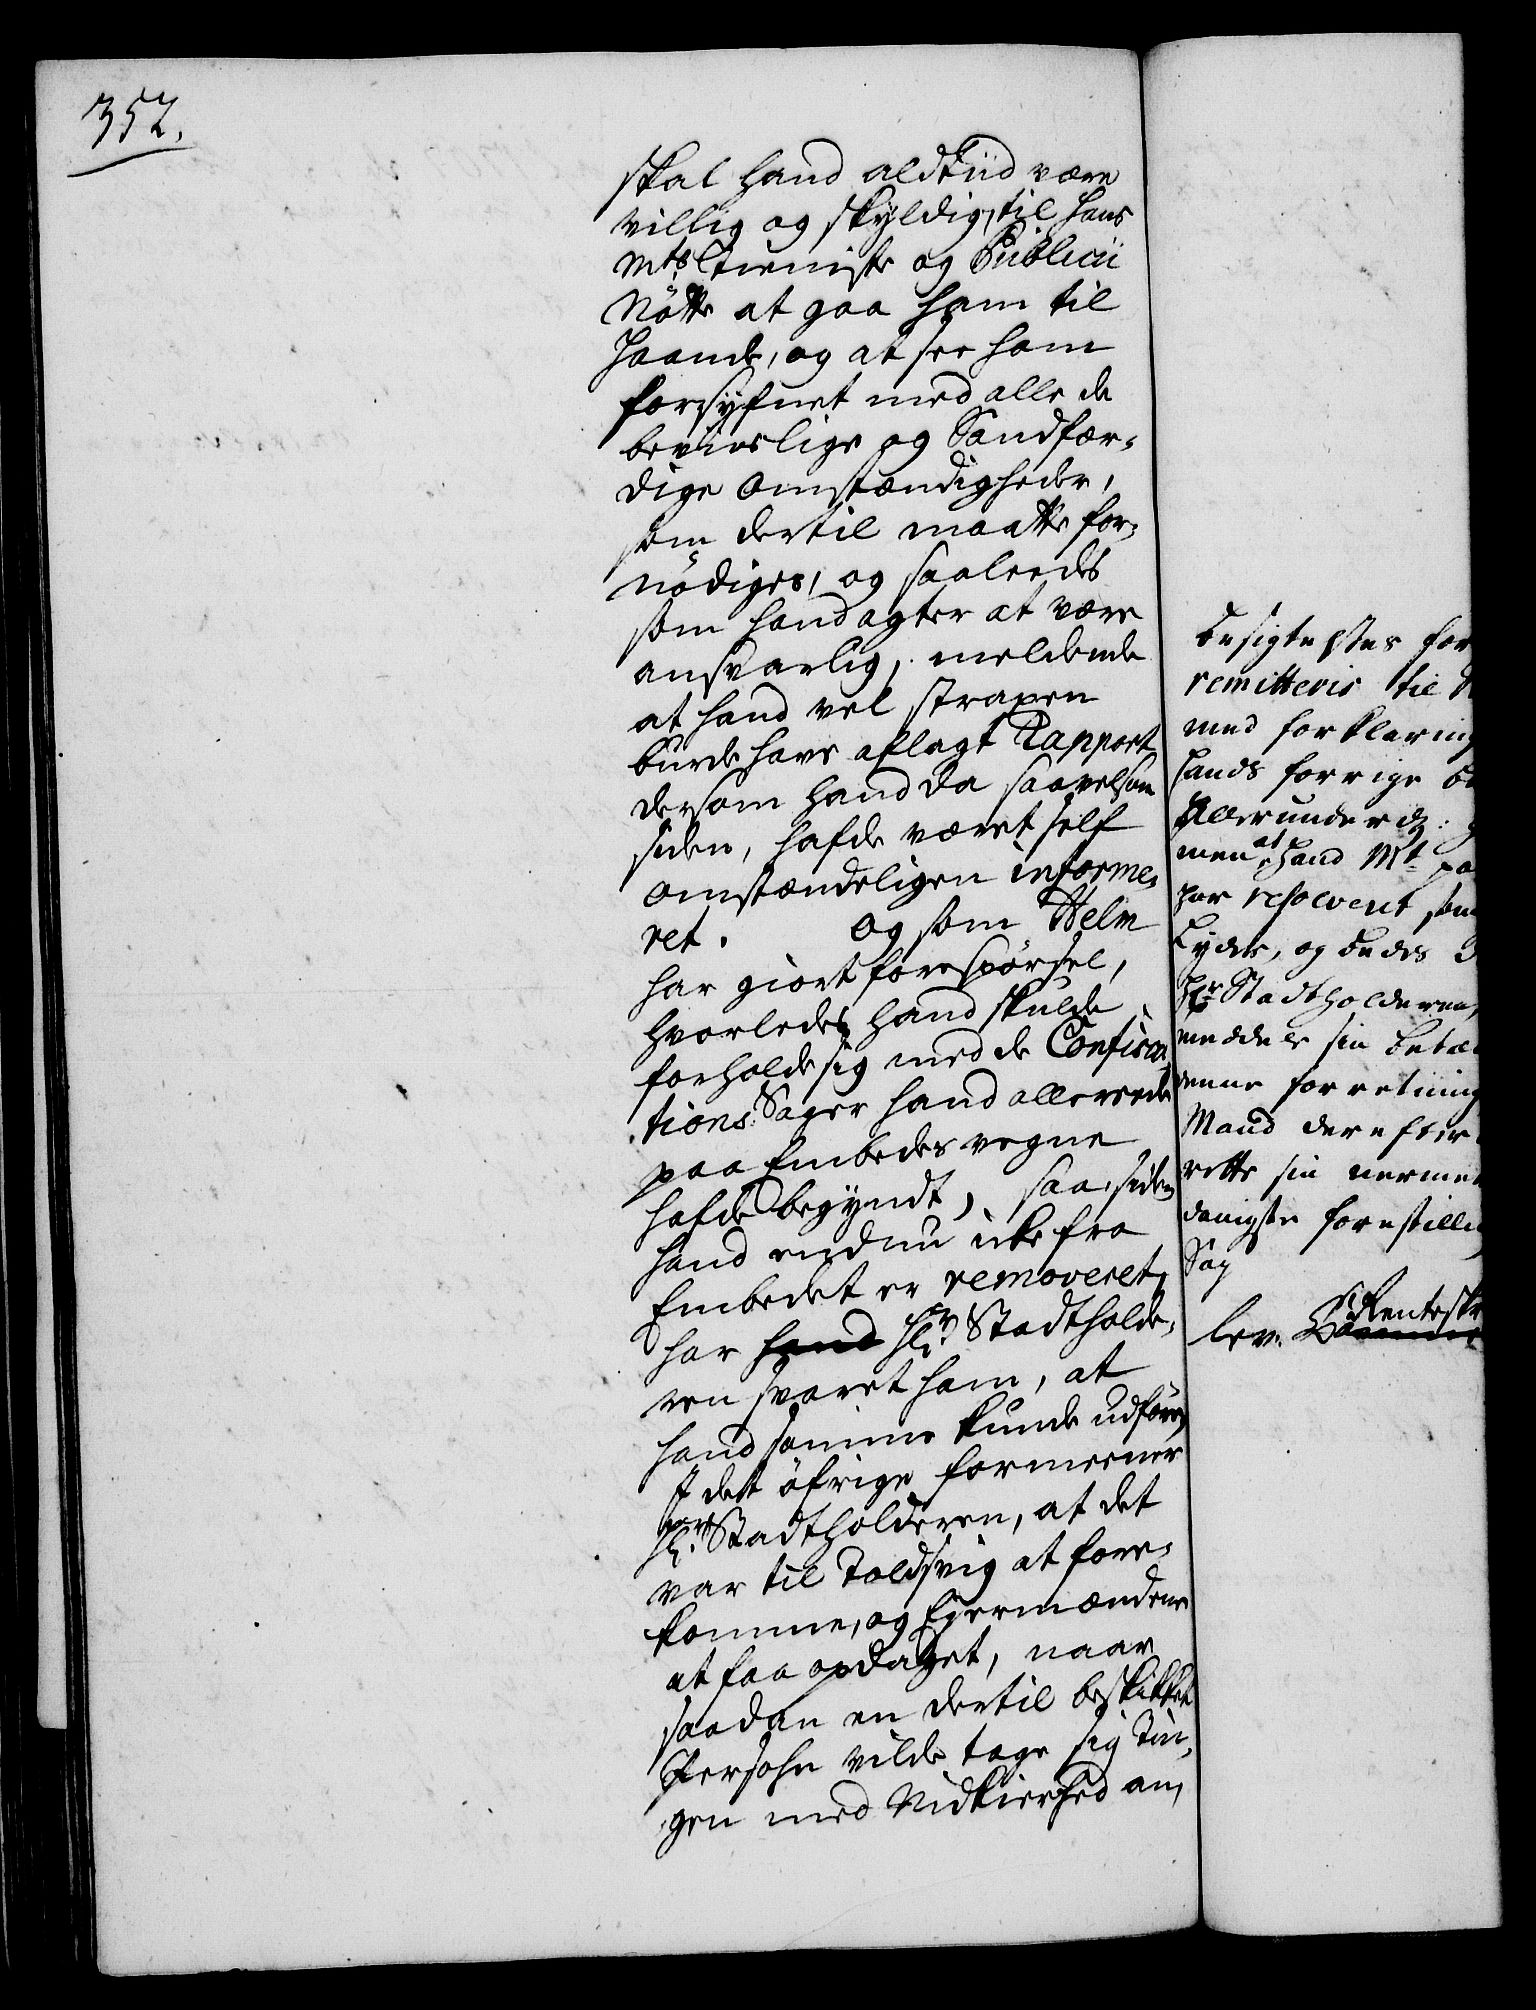 352.
skal hand aldtiid være
villig og skyldig, til Hans
Mts Tieniste og Publici
Nötte at gaa ham til
Haande, og at see ham
forsyfnet med alle de
beviislige og Sandfær-
dige Omstændigheder,
som dertil maatte for-
nödiges, og saaleedes
som hand agter at være
ansvarlig, meldende
at hand vel straxen
burde have aflagt Rapport
dersom hand da saavelsom
siden, hafde været self
omstændeligen informe-
ret. Og som Helm
har giort forespörsel,
hvorledes hand skulde
forholde sig med de Confisca-
tions Sager hand allereede
paa Embedes vegne
hafde begyndt, saa siden
hand endnu icke fra
Embedet er removeret,
har hand Hr. Stadtholde-
ren svaret ham, at
hand samme kunde udföre,
I det öfrige formeener
Hr. Stadtholderen, at det
var til Toldsvig at fore-
komme, og Eyermændene
at faa opdaget, naar
saadan en dertil beskikket
Persohn vilde tage sig Tin-
gen med Nidkierhed an,
besigtelses for
remitteris til
med forklaring
hands forrige
Allerunderd:
men at hand Mt
har resolveret som
lyder, og
Hr Stadtholderen,
meddele sin
denne forretning
Mand derefter
rette sin nerme
danigste forestilling
Sag
lev. Rentesk